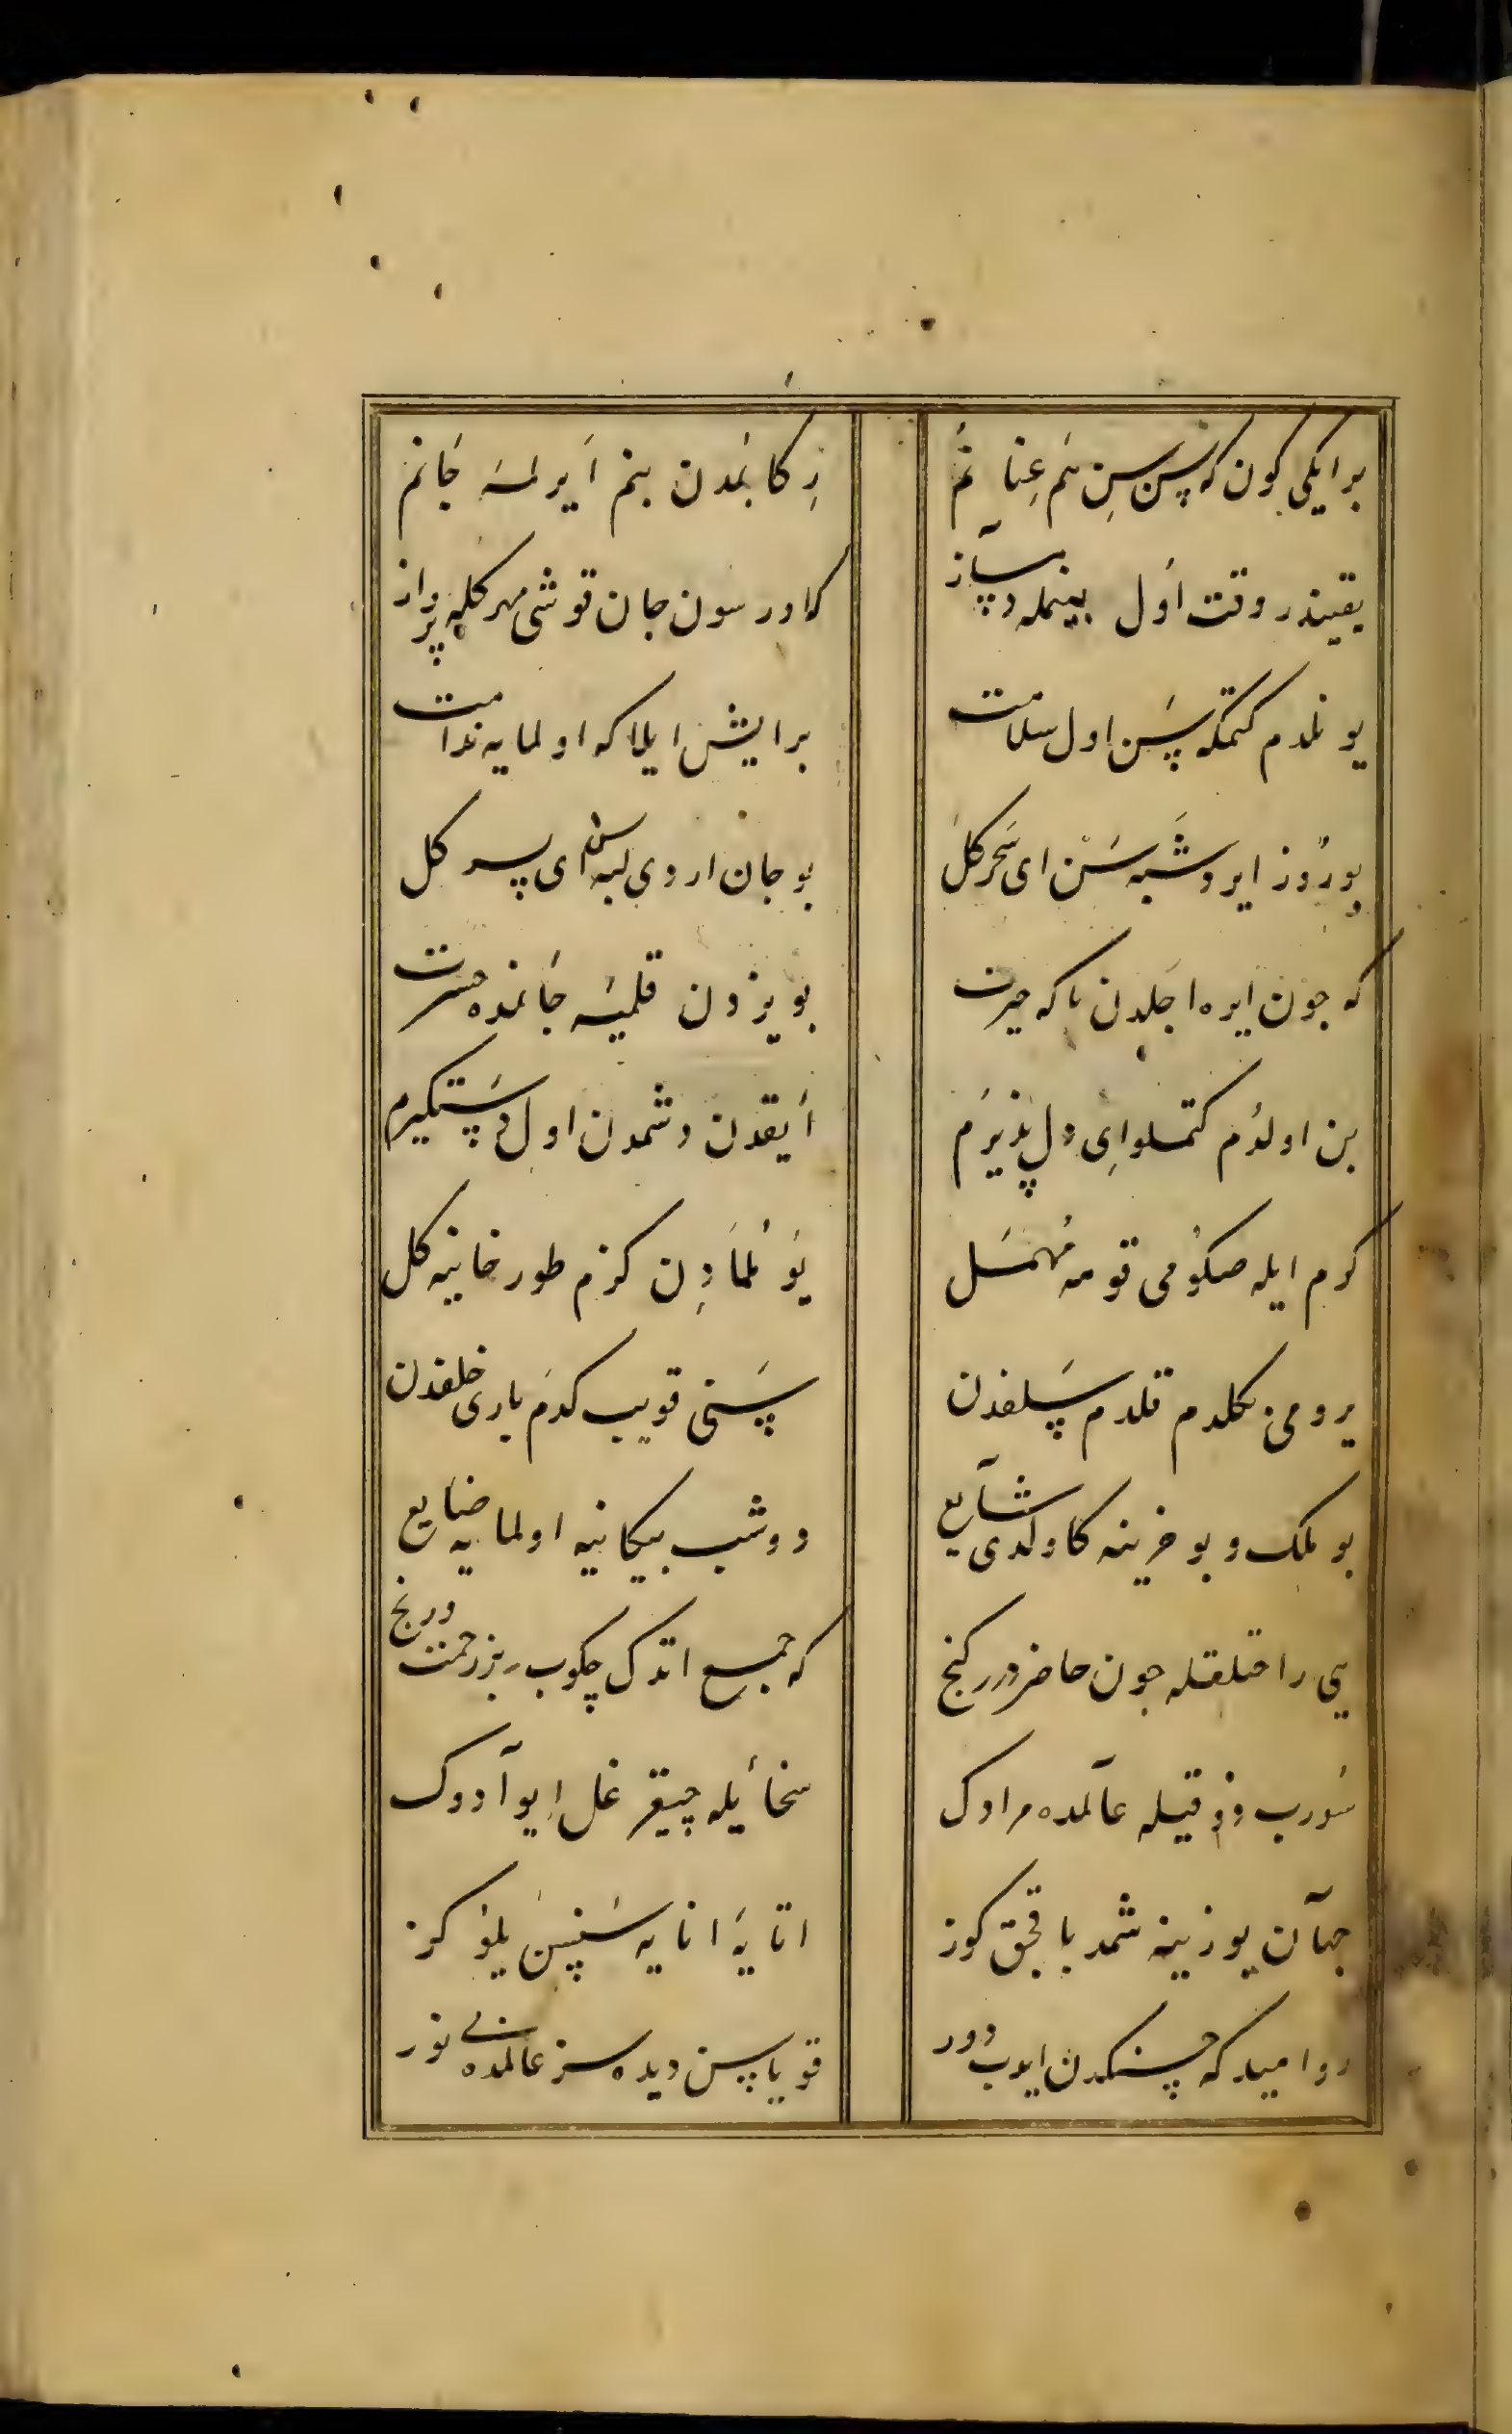 بر ایکی کون که سن سن بنم عنانم
رکابمدن بنم ایرلسه جانم
یقیندر وقت اول بینمله دمساز
کا ورسون جان قوشی مهرکله پرواز
یونلدم کتمکه سن اول سلامت
بر ایش ایلا که اولمایه ندامت
یوروز ایروشبه سن ای سحر کل
بو جان اروی لبه سن ای پسر کل
که چون ایره اجلدن باکه حیرت
بو یزدن قلمیه جانمده حسرت
بن اولدم کتملو ای دل پذیرم
ایقدن دشمدن اول دستکیرم
کرم ایله صکومی قومه مهمل
یونلمادن کزم طور خانیه کل
یرومی کلدم قلدم سلفدن
سنی قویب کدم باری خلفدن
بو ملک و بو خزینه کاولدی شایع
دوشب بیکانیه اولمایه ضایع
یی راحتلقله چون حاضردرر کنج
که جمع اتدک چکوب بز زحمت ورنج
سورب ذوقیله عالمده مرادک
سخائیله چیقر غل ایو آدوک
جهان یوزینه شمد باقجق کوز
اتایه انایه سنسن یلوکز
روا میدر که چشمکدن ایدب دور
قویاسن دیده سز عالمده بی نور